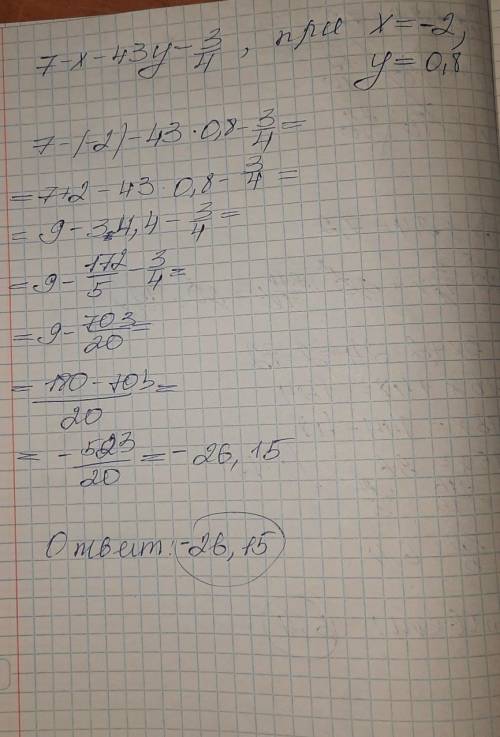 7-x-43y-3/4, при x=-2,
y=0,8
7-(-2)-43·0,8-3/4=
=7+2-43·0,8-3/4=
=9-34,4-3/4=
=9-172/5-3/4=
=9-703/20=
=180-703/20=
=-523/20=-26,15
Ответ:-26,15